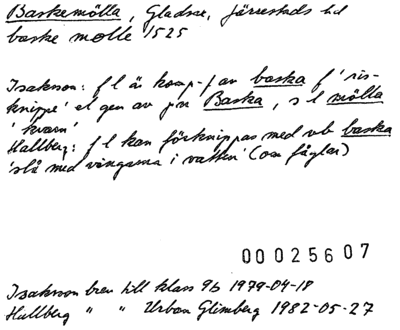 Baskemölla, Gladsax, Järrestads hd
baske mølle 1525
Isakson: f l är komp-f av baska f 'ris-
knippe' el gen av pn Baska, s l mölla
'kvarn'
Hallberg: f l kan förknippas med vb baska
'slå med vingarna i vatten' (om fåglar)
00025607
Isakson brev till klass 9b 1979-04-18
Hallberg " " Urban Glimberg 1982-05-27